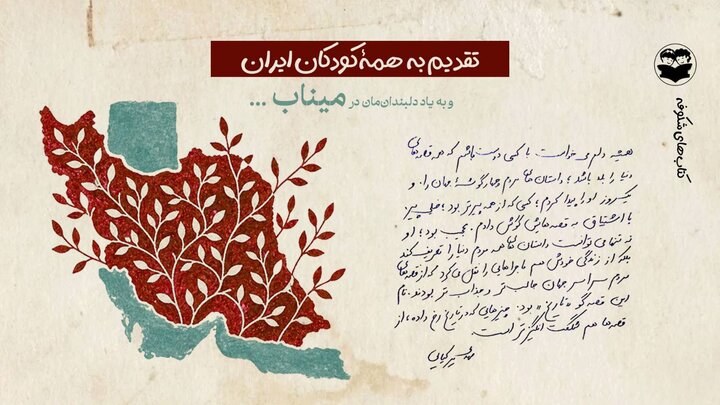 تقدیم به همهٔ کودکان ایران
و به یاد دلبندان‌مان در میناب ...
کتاب‌های شکوفه
همیشه دلم می‌خواست با کسی دوست باشم که همه قصه‌های
دنیا را بلد باشد؛ داستان‌های مردم چهار گوشهٔ جهان را. و
یک روز او را پیدا کردم؛ کسی که از همه پیرتر بود؛ خیلی پیر.
با اشتیاق به قصه‌هایش گوش دادم. عجیب بود؛ او
نه تنها می‌توانست داستان‌های همه مردم دنیا را تعریف کند
بلکه از زندگی خودش هم ماجراهایی را نقل می‌کرد که از قصه‌های
مردم سراسر جهان جالب‌تر و جذاب‌تر بودند. نام
این قصه‌گو «تاریخ» بود. چیزهایی که در تاریخ رخ داده، از
قصه‌ها هم شگفت‌انگیزتر است